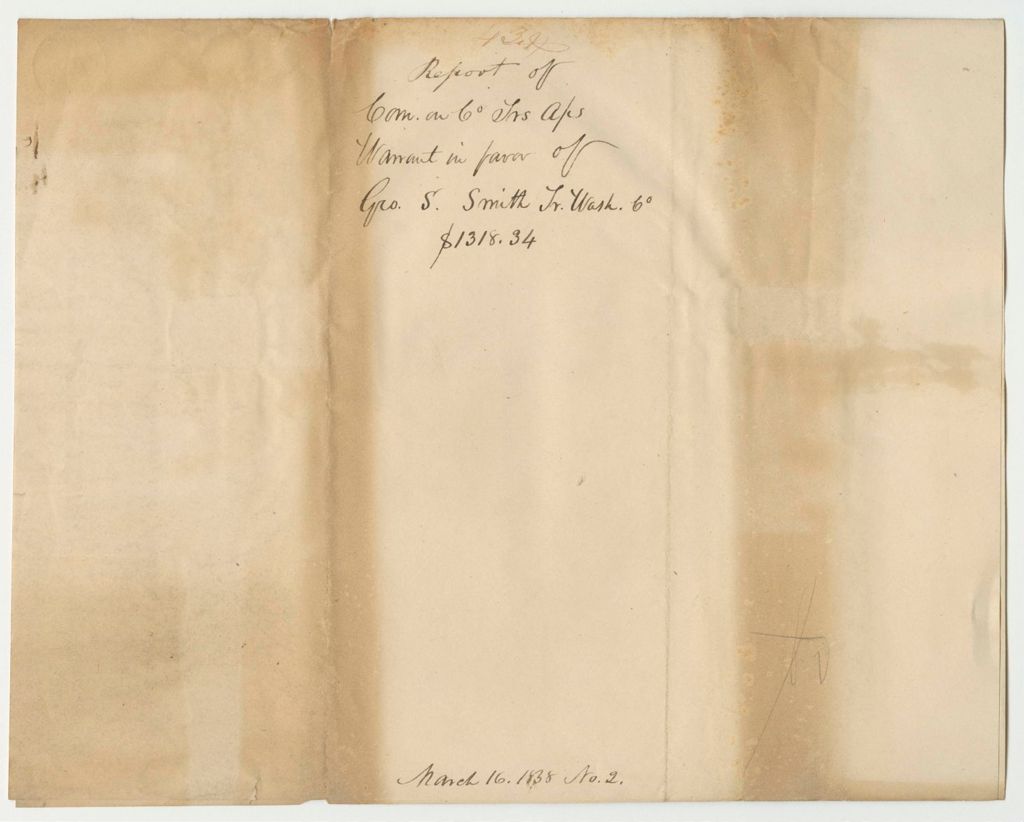 Report of
Com. on Co Trs Aps
Warrant in favor of
Geo. S. Smith Tr. Wash. Co
$1318.34
March 16. 1838 No. 2.